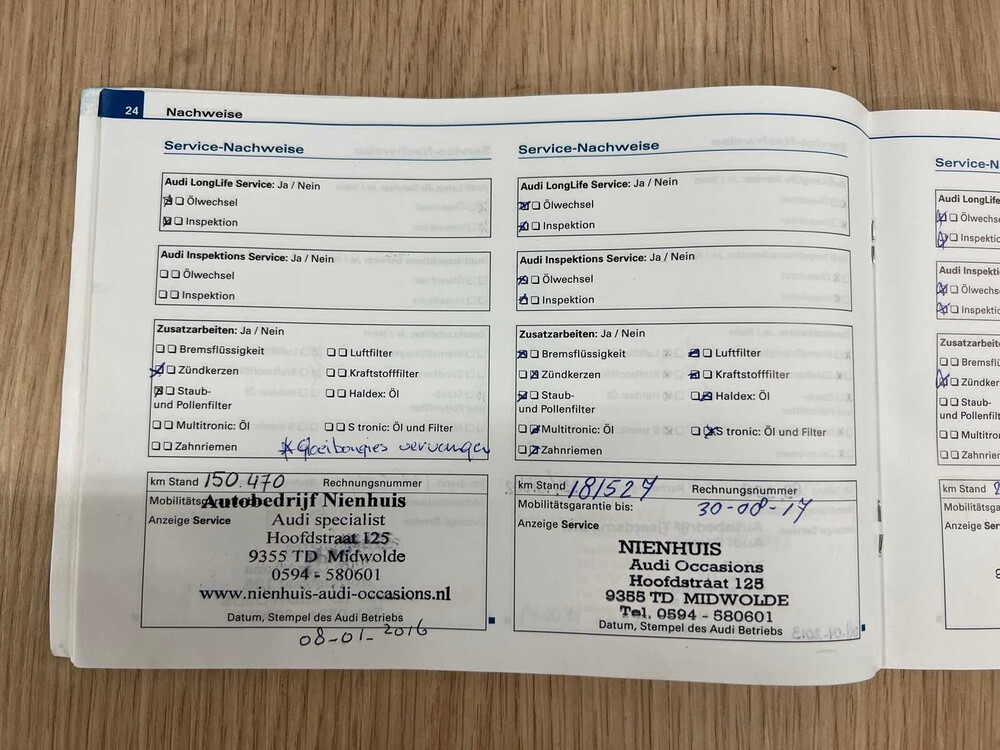 24 Nachweise
Service-Nachweise
Audi LongLife Service: Ja / Nein
Ölwechsel
Inspektion
Audi Inspektions Service: Ja / Nein
Ölwechsel
Inspektion
Zusatzarbeiten: Ja / Nein
Bremsflüssigkeit Luftfilter
Zündkerzen Kraftstofffilter
Staub- Haldex: Öl
und Pollenfilter
Multitronic: Öl S tronic: Öl und Filter
Zahnriemen *Gloeibougies vervangen
km Stand 150.470 Rechnungsnummer
Autobedrijf Nienhuis
Anzeige Service Audi specialist
Hoofdstraat 125
9355 TD Midwolde
0594 - 580601
www.nienhuis-audi-occasions.nl
Datum, Stempel des Audi Betriebs
08-01-2016
Service-Nachweise
Audi LongLife Service: Ja / Nein
Ölwechsel
Inspektion
Audi Inspektions Service: Ja / Nein
Ölwechsel
Inspektion
Zusatzarbeiten: Ja / Nein
Bremsflüssigkeit Luftfilter
Zündkerzen Kraftstofffilter
Staub- Haldex: Öl
und Pollenfilter
Multitronic: Öl S tronic: Öl und Filter
Zahnriemen
km Stand 181527 Rechnungsnummer
Mobilitätsgarantie bis: 30-08-17
Anzeige Service
NIENHUIS
Audi Occasions
Hoofdstraat 125
9355 TD MIDWOLDE
Tel. 0594 - 580601
Datum, Stempel des Audi Betriebs
Service-N
Audi LongLife
Ölwechs
Inspektio
Audi Inspekti
Ölwechs
Inspektio
Zusatzarbeite
Bremsflü
Zündker
Staub-
und Pollenfilt
Multitron
Zahnrie
km Stand
Mobilitätsga
Anzeige Ser